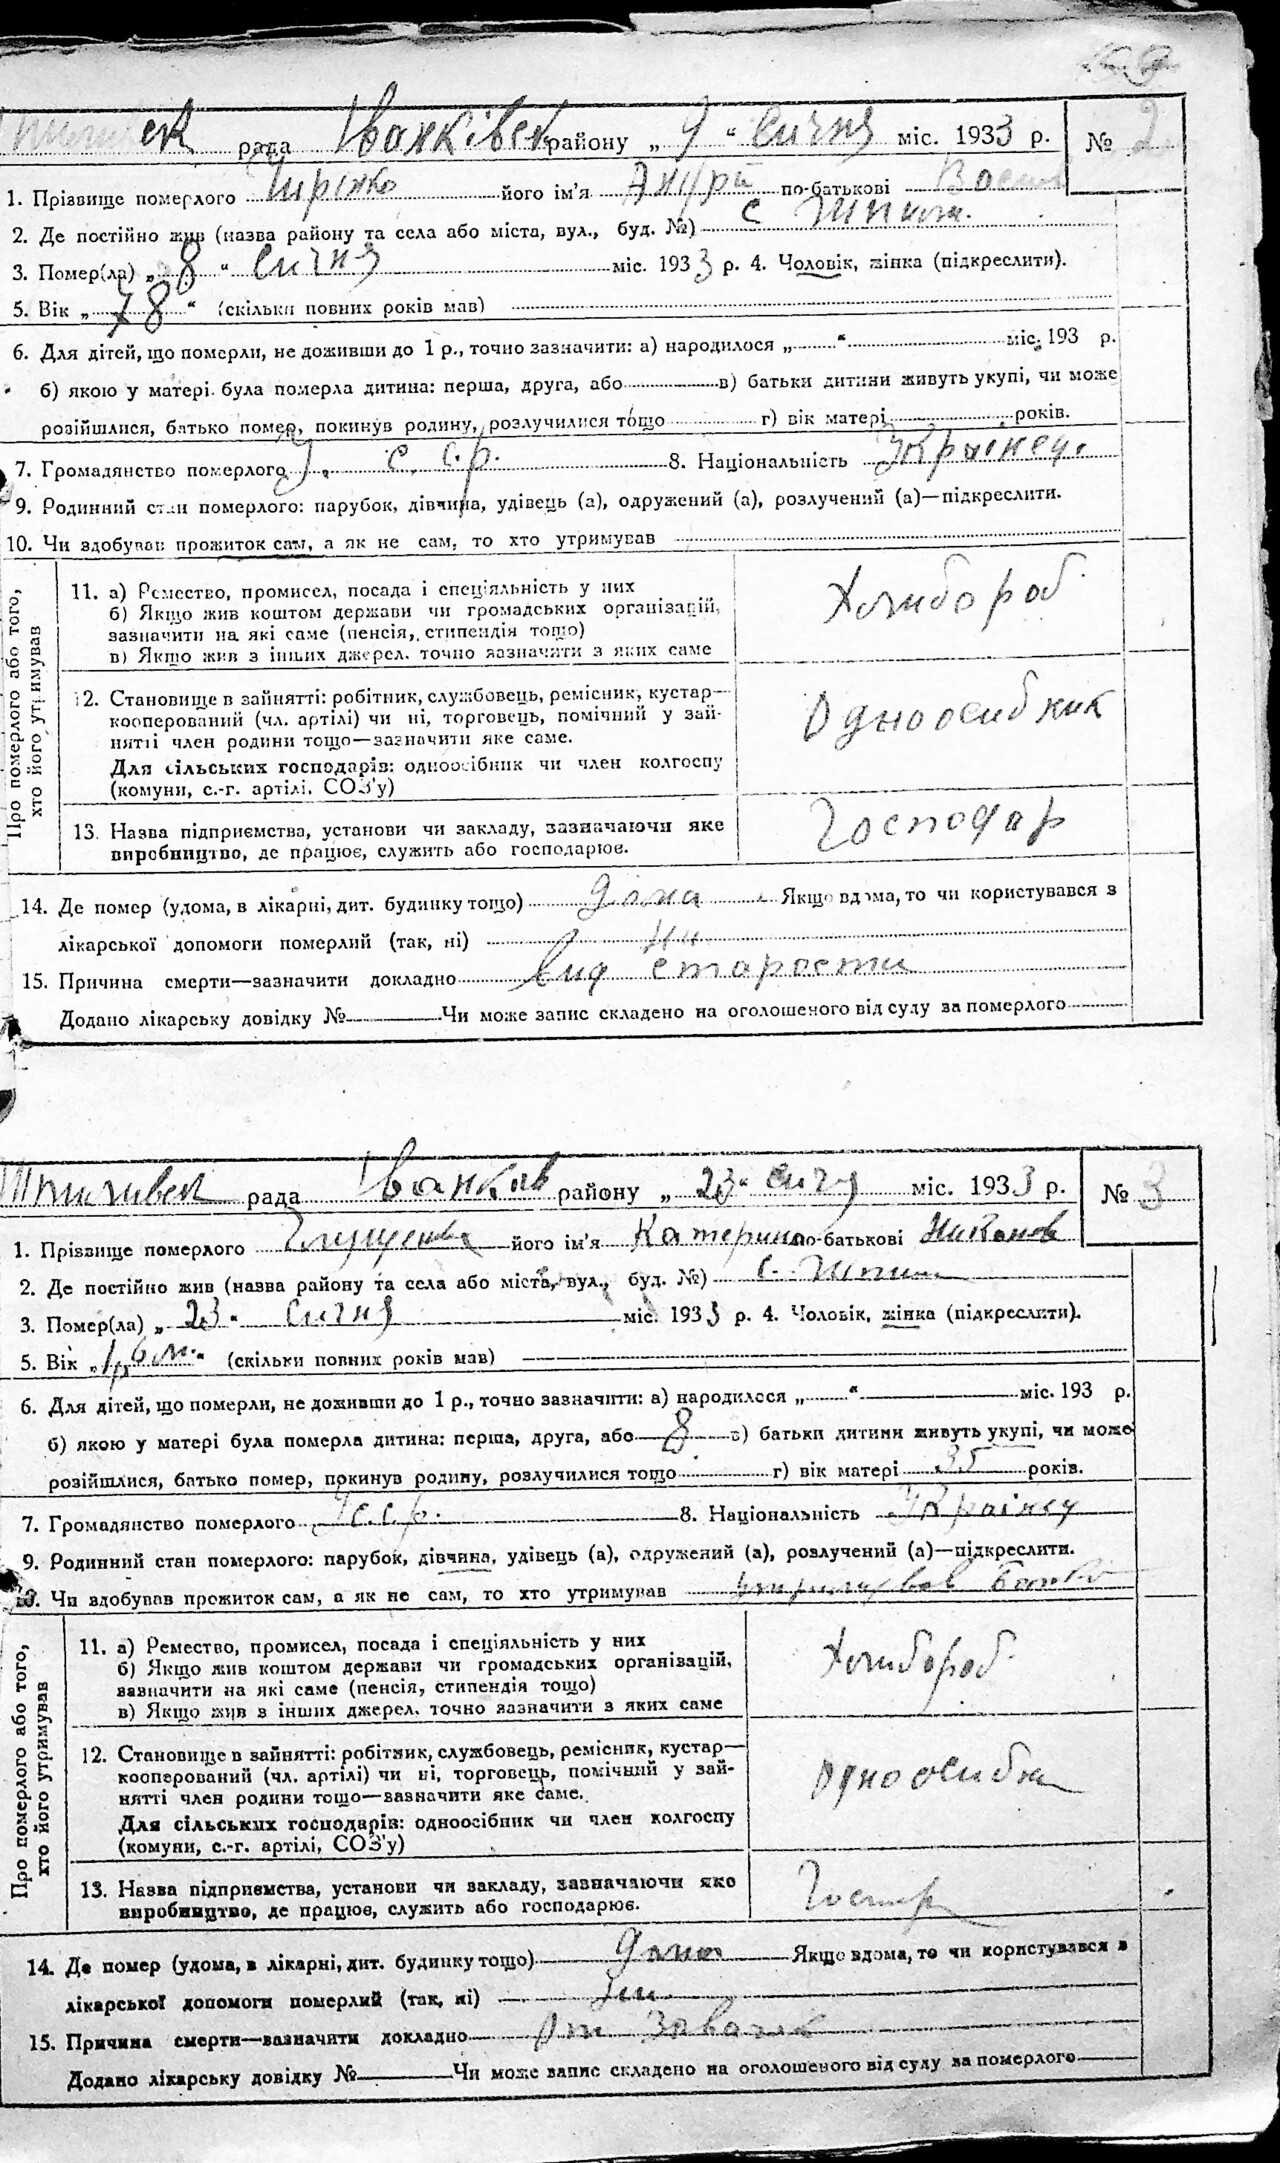 рада Іванківськ району „ 9 " Сичня міс. 1933 р. № 2
1. Прізвище померлого його ім'я Андрій по-батькові Васил
2. Де постійно жив (назва району та села або міста, вул., буд. №) с Шпили.
3. Помер(ла) „ 8 " Сичня міс. 1933 р. 4. Чоловік, жінка (підкреслити).
5. Вік „ 78 " (скільки повних років мав)
6. Для дітей, що померли, не доживши до 1 р., точно зазначити: а) народилося „ " міс. 193 р.
б) якою у матері була померла дитина: перша, друга, або в) батьки дитини живуть укупі, чи може
розійшлися, батько помер, покинув родину, розлучилися тощо г) вік матері років.
7. Громадянство померлого У. С. С. р. 8. Національність Українец.
9. Родинний стан померлого: парубок, дівчина, удівець (а), одружений (а), розлучений (а)—підкреслити.
10. Чи здобував прожиток сам, а як не сам, то хто утримував
Про померлого або того,
хто його утримував
11. а) Ремество, промисел, посада і спеціяльність у них
б) Якщо жив коштом держави чи громадських організацій,
зазначити на які саме (пенсія, стипендія тощо)
в) Якщо жив з інших джерел, точно зазначити з яких саме
Хлибороб
12. Становище в зайнятті: робітник, службовець, ремісник, кустар—
кооперований (чл. артілі) чи ні, торговець, помічний у зай-
нятті член родини тощо—зазначити яке саме.
Для сільських господарів: одноосібник чи член колгоспу
(комуни, с.-г. артілі, СОЗ'у)
Одноосибник
13. Назва підприємства, установи чи закладу, зазначаючи яке
виробництво, де працює, служить або господарює.
Господар
14. Де помер (удома, в лікарні, дит. будинку тощо) дома Якщо вдома, то чи користувався з
лікарської допомоги померлий (так, ні) ни
15. Причина смерти—зазначити докладно Вид старости
Додано лікарську довідку № Чи може запис складено на оголошеного від суду за померлого
Шпилівськ рада Іванков району „ 23 " Сичня міс. 1933 р. № 3
1. Прізвище померлого його ім'я Катерина по-батькові Никонов
2. Де постійно жив (назва району та села або міста, вул., буд. №) с. Шпили
3. Помер(ла) „ 23 " Сичня міс. 1933 р. 4. Чоловік, жінка (підкреслити).
5. Вік „ " (скільки повних років мав)
6. Для дітей, що померли, не доживши до 1 р., точно зазначити: а) народилося „ " міс. 193 р.
б) якою у матері була померла дитина: перша, друга, або 8 в) батьки дитини живуть укупі, чи може
розійшлися, батько помер, покинув родину, розлучилися тощо г) вік матері 35 років.
7. Громадянство померлого УС.С.р. 8. Національність Українец
9. Родинний стан померлого: парубок, дівчина, удівець (а), одружений (а), розлучений (а)—підкреслити.
10. Чи здобував прожиток сам, а як не сам, то хто утримував утримував Батько
Про померлого або того,
хто його утримував
11. а) Ремество, промисел, посада і спеціяльність у них
б) Якщо жив коштом держави чи громадських організацій,
зазначити на які саме (пенсія, стипендія тощо)
в) Якщо жив з інших джерел, точно зазначити з яких саме
Хлибороб
12. Становище в зайнятті: робітник, службовець, ремісник, кустар—
кооперований (чл. артілі) чи ні, торговець, помічний у зай-
нятті член родини тощо—зазначити яке саме.
Для сільських господарів: одноосібник чи член колгоспу
(комуни, с.-г. артілі, СОЗ'у)
Одноосибн
13. Назва підприємства, установи чи закладу, зазначаючи яке
виробництво, де працює, служить або господарює.
14. Де помер (удома, в лікарні, дит. будинку тощо) дома Якщо вдома, то чи користувався з
лікарської допомоги померлий (так, ні) ни
15. Причина смерти—зазначити докладно От
Додано лікарську довідку № Чи може запис складено на оголошеного від суду за померлого